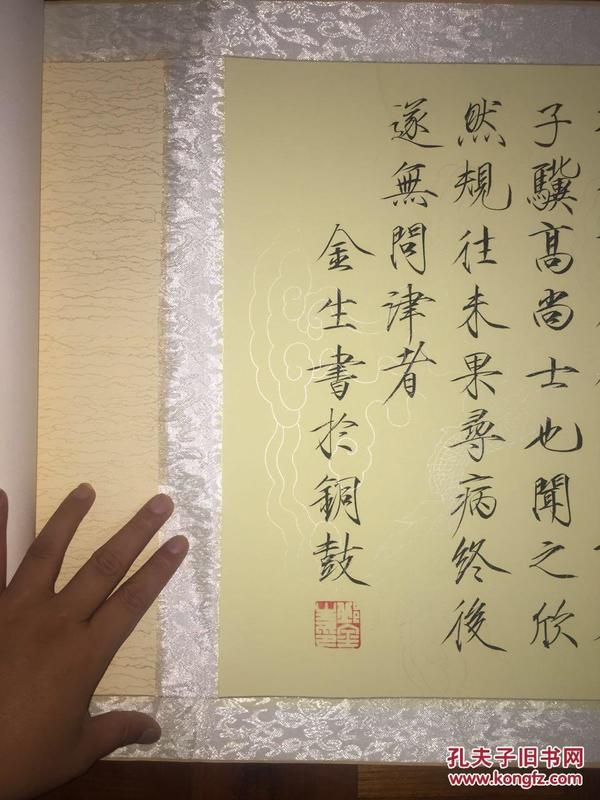 子驥高尚士也聞之欣
然規往未果尋病終後
遂無問津者
金生書於銅鼓
孔夫子旧书网
www.kongfz.com